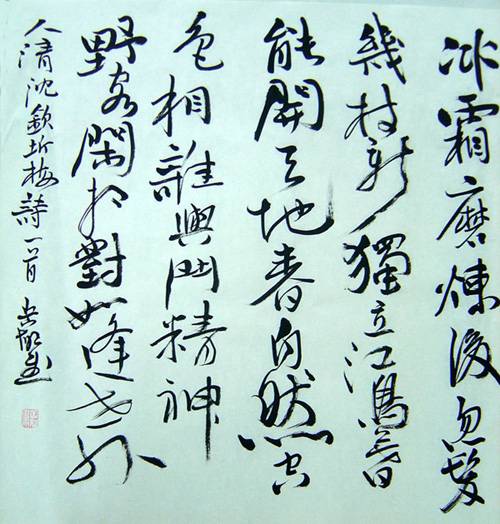 冰霜磨煉後忽髮
幾枝新獨立江島暮
能開天地春自然空
色相誰與鬥精神
野客閑相對如逢世外
人清沈欽圻梅詩一首